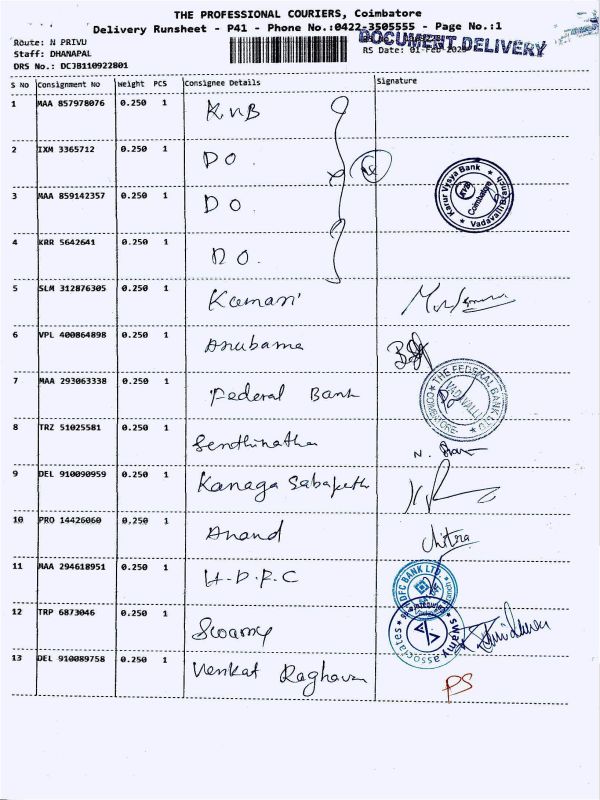 THE PROFESSIONAL COURIERS, Coimbatore
Delivery Runsheet - P41 - Phone No.:0422-3505555 - Page No.:1
DOCUMENT DELIVERY
Route: N PRIVU
Staff: DHANAPAL RS Date: 01-Feb-2023
DRS No.: DCJB110922801
S No Consignment No Weight PCS Consignee Details Signature
1 MAA 857978076 0.250 1 KVB
2 IXM 3365712 0.250 1 DO.
3 MAA 859142357 0.250 1 DO.
Karur Vysya Bank Coimbatore Vadavalli Branch
4 KRR 5642641 0.250 1 DO.
5 SLM 312876305 0.250 1 Kumari
6 VPL 400864898 0.250 1 Anubama
7 MAA 293063338 0.250 1 Federal Bank
THE FEDERAL BANK LTD. VADAVALLI COIMBATORE
8 TRZ 51025581 0.250 1 Senthinatha
9 DEL 910090959 0.250 1 Kanaga Sabapeth
10 PRO 14426060 0.250 1 Anand Chitra
11 MAA 294618951 0.250 1 H.D.F.C
HDFC BANK LTD.
12 TRP 6873046 0.250 1 Swamy
swamy associates
13 DEL 910089758 0.250 1 Venkat Raghavan PS